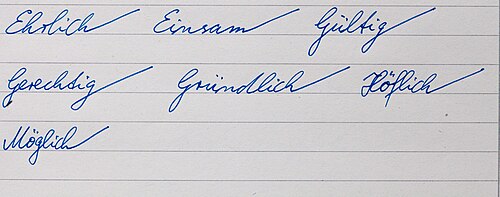 Ehrlich Einsam Gültig
Gerechtig Gründlich Höflich
Möglich